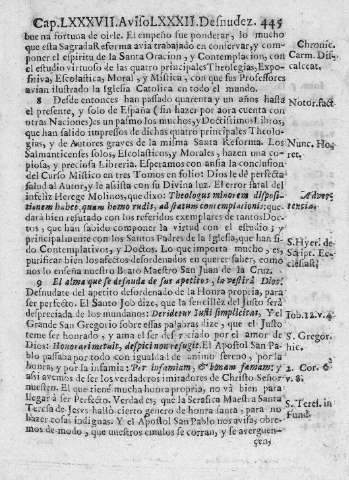 Cap. LXXXVII. Aviso LXXXII. Desnudez. 445
bue na fortuna de oirle. El empeño fue ponderar, lo mucho
que esta Sagrada Reforma avia trabajado en conservar, y com-
poner el espiritu de la Santa Oracion, y Contemplacion, con
el estudio virtuoso de las quatro principales Theologias, Expo-
sitiva, Escolastica, Moral, y Mistica, con que sus Professores
avian ilustrado la Iglesia Catolica en todo el mundo.
Chronic.
Carm. Dis-
calceat.
8 Desde entonces han passado quarenta y un años hasta
el presente, y solo de España (sin hazer por aora cuenta con
otras Naciones) es un pasmo los muchos, y Doctissimos Libros,
que han salido impressos de dichas quatro principales Theolo-
gias, y de Autores graves de la misma Santa Reforma. Los
Salmanticenses solos, Escolasticos, y Morales, hazen una co-
piosa, y preciosa Libreria. Esperamos con ansia la conclusion
del Curso Mistico en tres Tomos en folio: Dios le dè perfecta
salud al Autor, y le asista con su Divina luz. El error fatal del
infeliz Herege Molinos, que dixo: Theologus minorem disposi-
tionem habet quam homo rudis, ad statum contemplationis; que-
dará bien refutado con los referidos exemplares de tantos Doc-
tos, que han sabido componer la virtud con el estudio; y
principalmente con los Santos Padres de la Iglesia, que han si-
do Contemplativos, y Doctos. Lo que importa mucho, es,
purificar bien los afectos desordenados en querer saber, como
nos lo enseña nuestro Beato Maestro San Juan de la Cruz.
Notor. fact
Nunc. Ho,
ret.
Adver-
tencia.
S. Hyer. de
Script. Ec-
clesiast;
9 El alma que se desnuda de sus apetitos, la vestirà Dios:
Desnudate del apetito desordenado de la Honra propia, para
ser perfecto. El Santo Job dize, que la sencillèz del Justo será
despreciada de los mundanos: Deridetur Iusti simplicitas, Y el
Grande San Gregorio sobre essas palabras dize, que el Justo
teme ser honrado, y ama el ser despreciado por el amor de
Dios: Honorari metuit, despici non refugit. El Apostol San Pa-
blo passaba por todo con igualdad de animo sereno, por la
honra, y por la infamia: Per infamiam, & bonam famam: y
assi avemos de ser los verdaderos imitadores de Christo Señor
nuestro. El que tiene mucha honra propria, no vá bien para
llegar à ser Perfecto. Verdad es, que la Serafica Maestra Santa
Teresa de Jesus hallò cierto genero de honra santa, para no
hazer cosas indignas. Y el Apostol San Pablo nos avisa, obre-
mos de modo, que nuestros emulos se corran, y se averguen-
Iob. 12. v. 4.
S. Gregor.
hic.
2. Cor. 6
v. 8.
S. Teres. in
Fund.
çen,